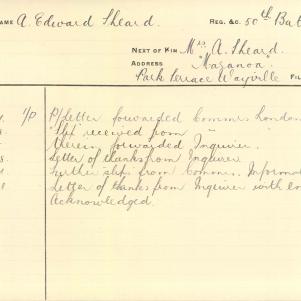 NAME A. Edward Sheard. REG. &C. 50th Bat
NEXT OF KIN Mrs A. Sheard.
ADDRESS "Mazanoa"
Park Terrace Wayville FIL
1/P P/Letter forwarded Commrs London
"Slip" received from " "
therein forwarded Inquirer.
Letter of thanks from Inquirer
Further slips from Commrs. Informat
Letter of thanks from Inquirer with
Acknowledged.